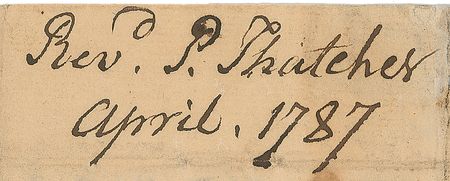 Revd. P. Thatcher
April. 1787